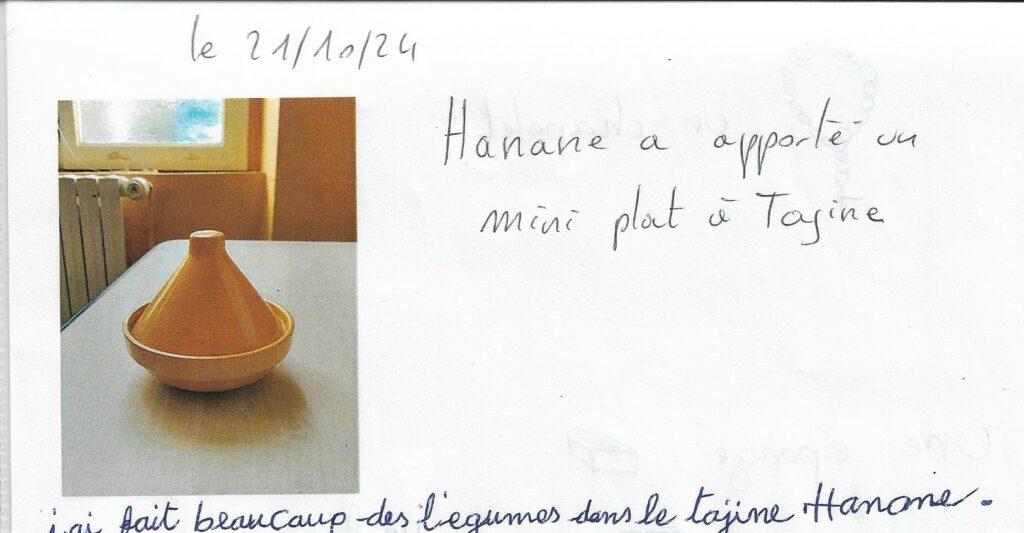 le 21/10/24
Hanane a apporté un
mini plat à Tajine
j'ai fait beaucoup des légumes dans le tajine Hanane.